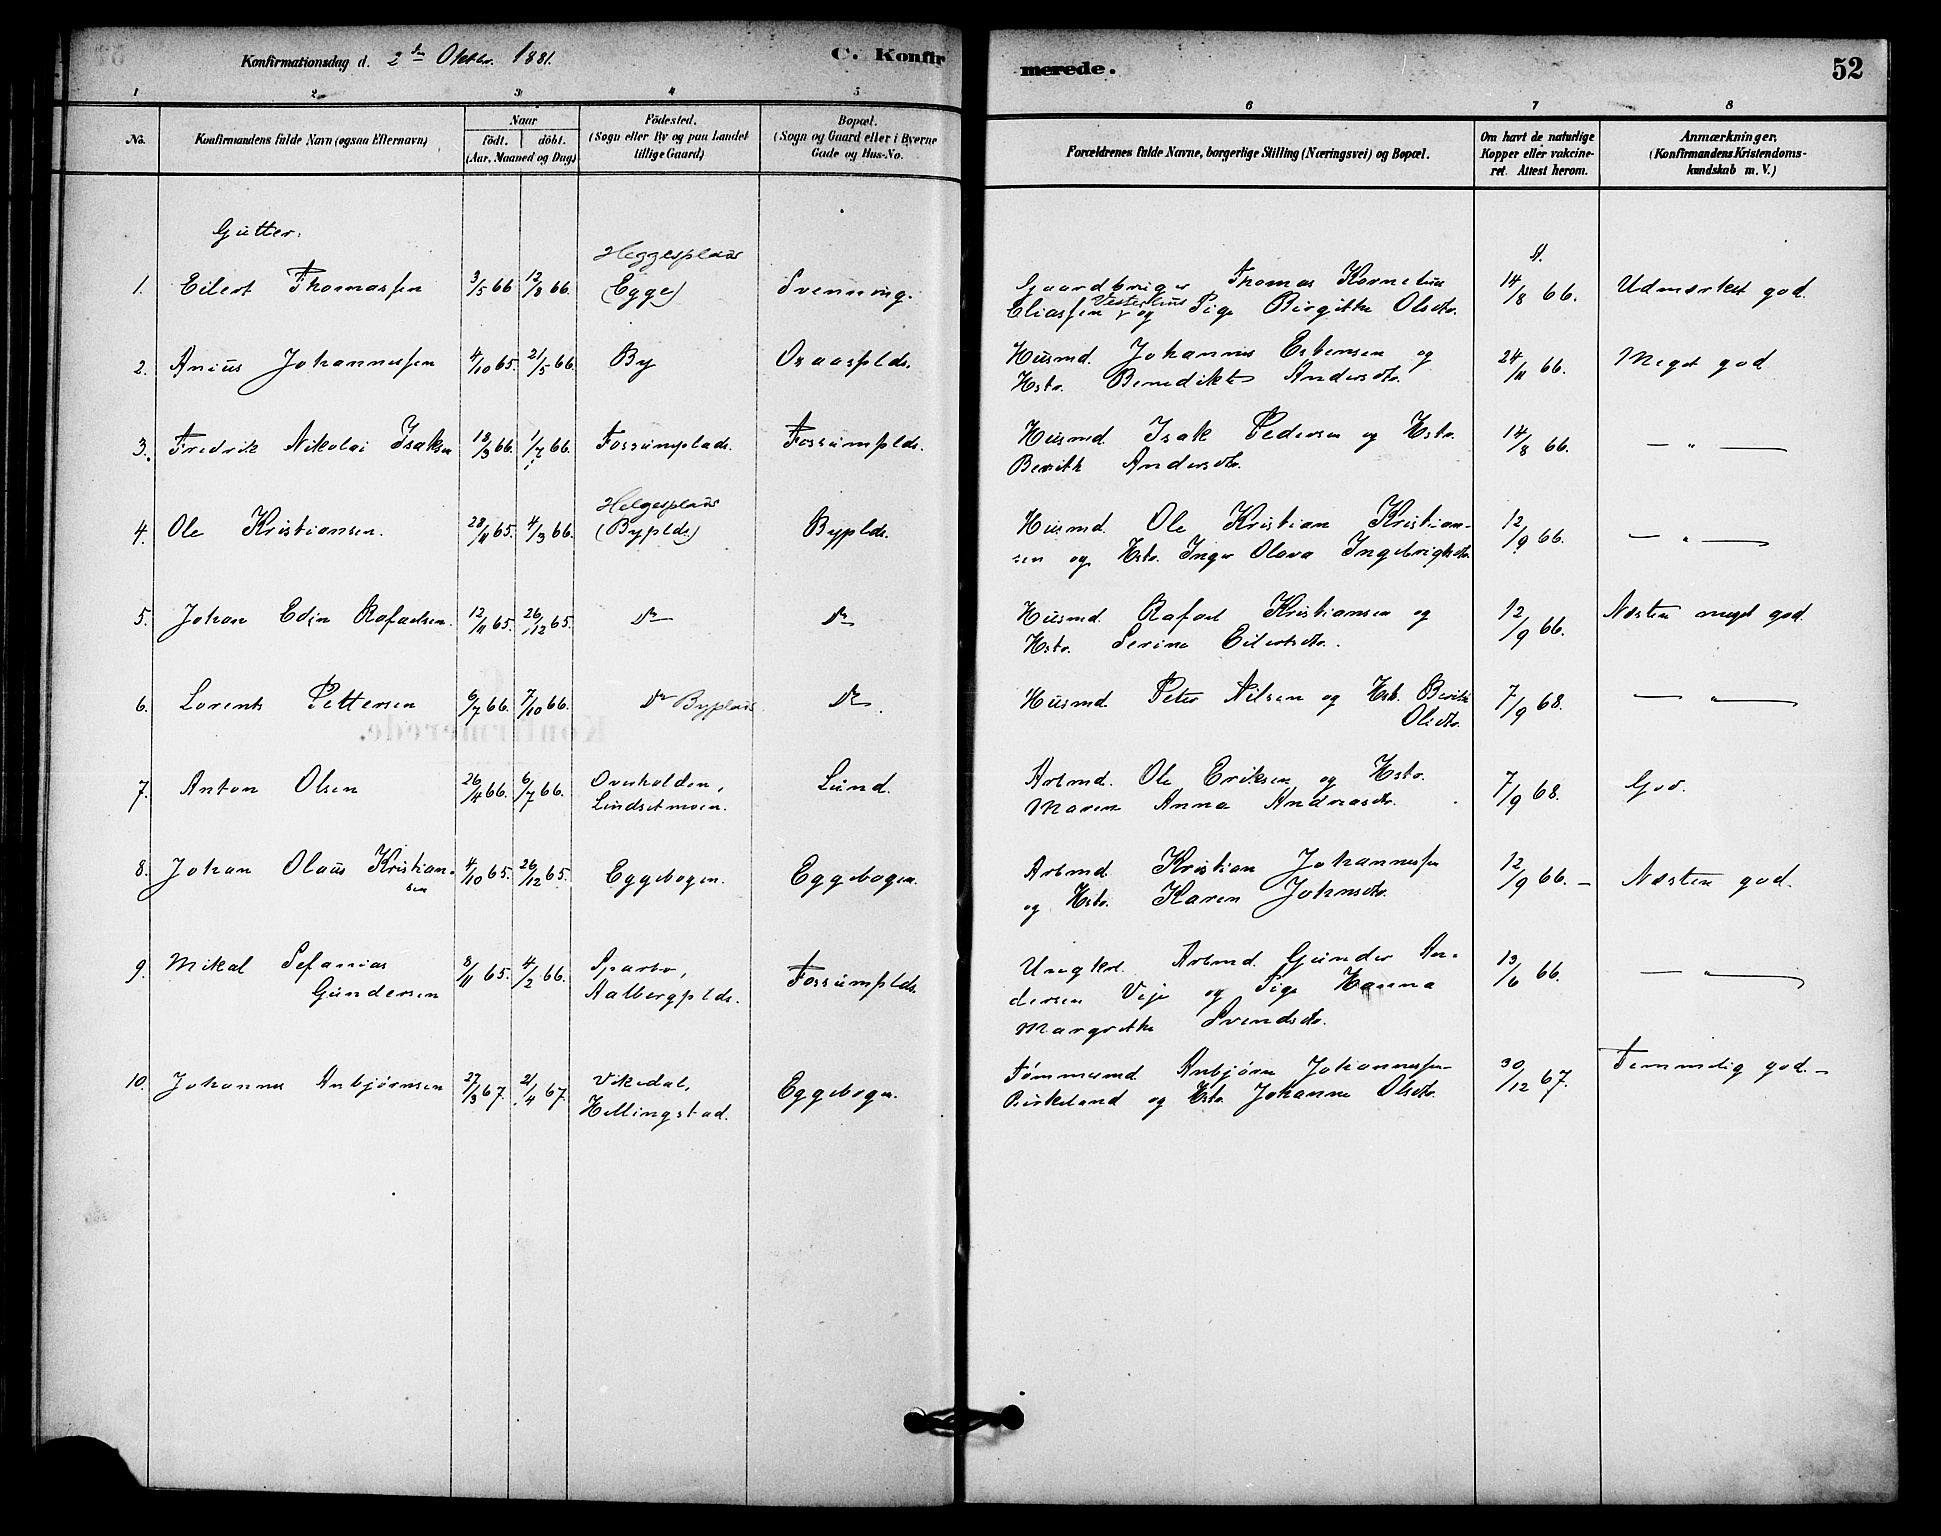 Konfirmationsdag d. 2den Oktbr. 1881.
C. Konfir
merede.
52
1 2 3 4 5 6 7 8
No.
Konfirmandens fulde Navn (ogsaa Efternavn)
Naar
födt. döbt.
(Aar, Maaned og Dag)
Födested.
(Sogn eller By og paa Landet
tillige Gaard)
Bopæl.
(Sogn og Gaard eller i Byerne
Gade og Hus-No.
Forældrenes fulde Navne, borgerlige Stilling (Næringsvei) og Bopæl.
Om havt de naturlige
Kopper eller vakcine-
ret. Attest herom.
Anmærkninger,
(Konfirmandens Kristendoms-
kundskab m. V.)
Gutter.
1. Eilert Thomassen 3/5 66 12/8 66. Heggesplads
(Egge) Svenning. Gaardbruger Thomas Kornelius
Eliassen Vesterhus og Pige Birgitte Olsdtr. 14/8 66. Udmærket god.
2. Anius Johannessen 4/10 65. 21/5 66. By Oraaspld. Husmd. Johannes Estensen og
Hstr. Benedikte Andersdtr. 24/11 66. Meget god
3. Fredrik Nikolai Isaksen 18/3 66. 1/7 66. Fossumplads. Fossumplds. Husmd. Isak Pedersen og Hstr.
Bereth Andersdtr. 14/8 66. — " —
4. Ole Kristiansen. 28/11 65. 4/3 66. Helgesplads
(Byplds) Byplds. Husmd. Ole Kristian Kristian-
sen og Hstr. Inger Olava Ingebrigtsdtr. 12/9 66. — " —
5. Johan Edin Rafaelsen. 12/11 65. 26/12 65. Do Do Husmd. Rafael Kristiansen og
Hstr. Serine Eilertsdtr. 12/9 66. Næsten meget god.
6. Lorents Pettersen 6/7 66. 7/10 66. Do Byplads Do. Husmd. Peter Nilsen og Hstr. Bereth
Olsdtr. 7/9 68. — " —
7. Anton Olsen 26/4 66. 6/7 66. Overhalden,
Lindsetmoen. Lund. Arbmd. Ole Eriksen og Hstr.
Maren Anna Andreasdtr. 7/9 68. God.
8. Johan Olaus Kristian-
sen 4/10 65. 26/12 65. Eggebogen. Eggebogen. Arbmd. Kristian Johannessen
og Hstr. Karen Johnsdtr. 12/9 66. — Næsten god.
9. Mikal Sefanias
Gundersen 8/11 65. 4/2 66. Sparbo,
Aalbergplds. Fossumplds. Ungkrl. Arbmd. Gunder An-
dersen Veje og Pige Hanna
Margrethe Svendsdtr. 13/6 66. — " —
10. Johannes Anbjørnsen 27/3 67. 21/4 67. Vikedal,
Hellingstad. Eggebogen. Tømmermd. Anbjørn Johannessen
Birkeland og Hstr. Johanne Olsdtr. 30/12 67. Temmelig god. —